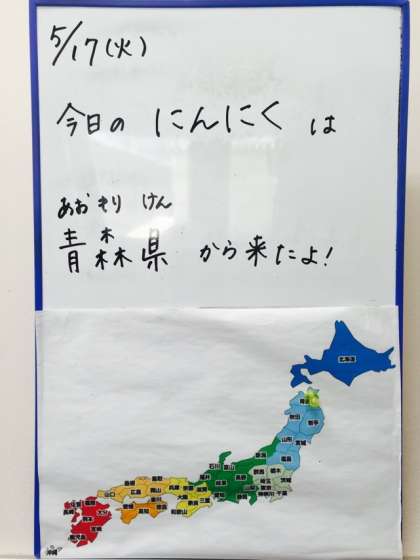 5/17(火)
今日の にんにく は
あおもり けん
青森県 から来たよ!
北海道
秋田
岩手
山形
宮城
福島
新潟
石川 富山
群馬
栃木
茨城
埼玉
千葉
神奈川
長野
岐阜
愛知
三重
和歌山
兵庫
鳥取
島根
岡山
広島
山口
愛媛
高知
佐賀
長崎
大分
熊本
宮崎
鹿児島
沖縄